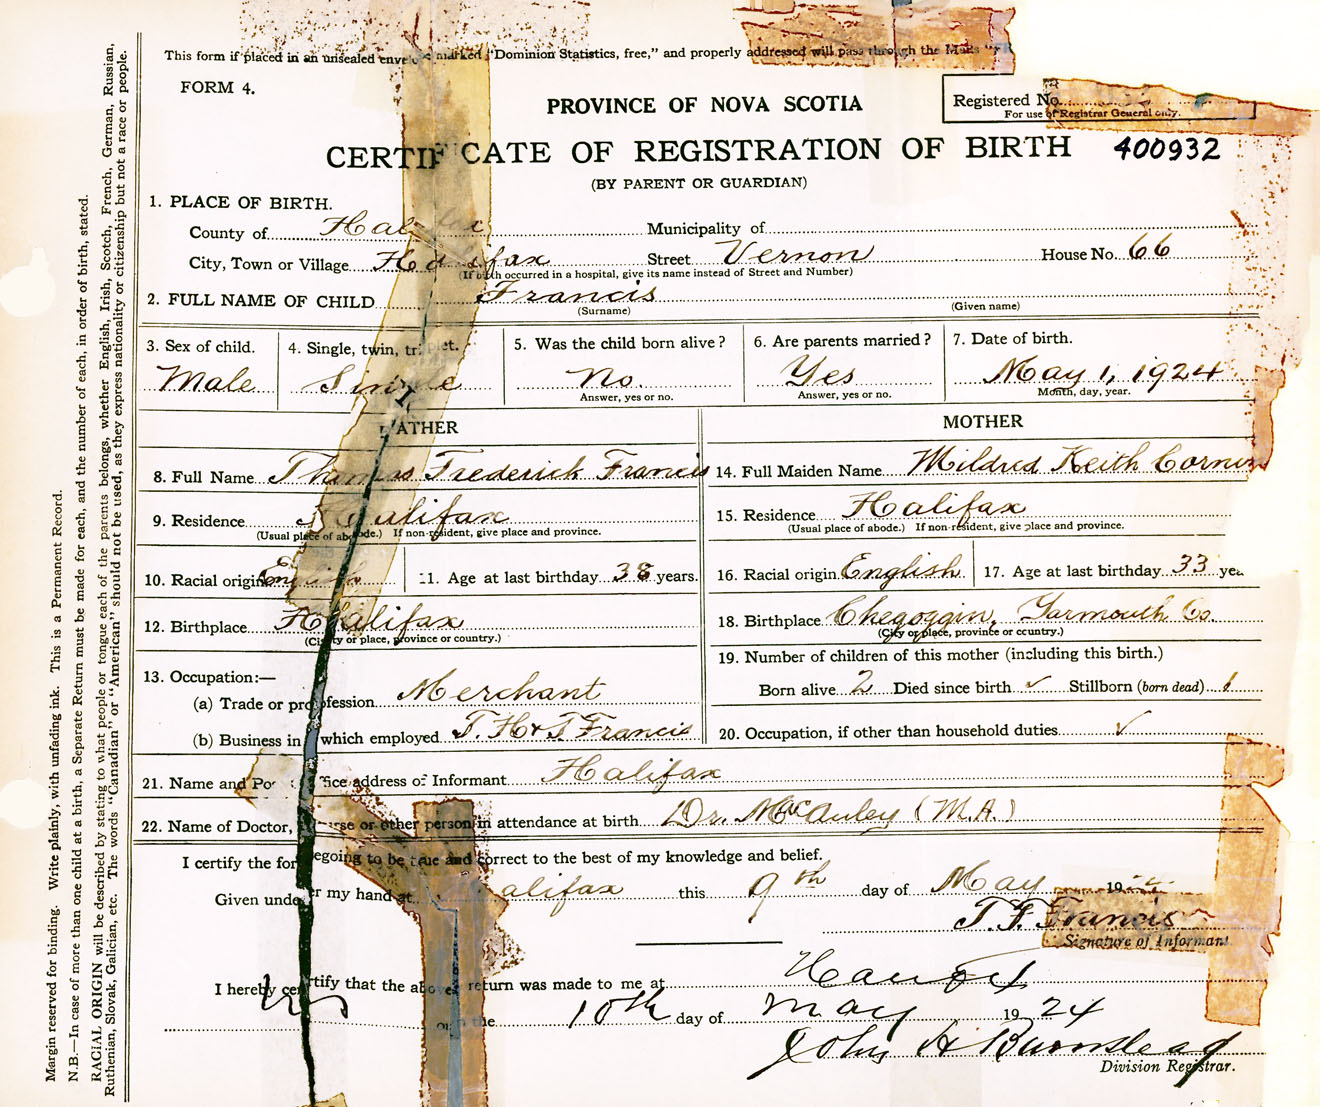 This form if placed in an unsealed envelope marked "Dominion Statistics, free," and properly addressed will pass through the Mails
FORM 4.
PROVINCE OF NOVA SCOTIA
Registered No.
For use of Registrar General only.
CERTIFICATE OF REGISTRATION OF BIRTH 400932
(BY PARENT OR GUARDIAN)
1. PLACE OF BIRTH.
County of Halifax Municipality of
City, Town or Village Halifax Street Vernon House No. 66
(If birth occurred in a hospital, give its name instead of Street and Number)
2. FULL NAME OF CHILD Francis
(Surname) (Given name)
3. Sex of child. 4. Single, twin, triplet. 5. Was the child born alive? 6. Are parents married? 7. Date of birth.
Male Single No. Yes May 1, 1924
Answer, yes or no. Answer, yes or no. Month, day, year.
FATHER
8. Full Name Thomas Frederick Francis
9. Residence Halifax
(Usual place of abode.) If non-resident, give place and province.
10. Racial origin English 11. Age at last birthday 38 years.
12. Birthplace Halifax
(City or place, province or country.)
13. Occupation:—
(a) Trade or profession Merchant
(b) Business in which employed T. H & T Francis
MOTHER
14. Full Maiden Name Mildred Keith
15. Residence Halifax
(Usual place of abode.) If non-resident, give place and province.
16. Racial origin English 17. Age at last birthday 33 years
18. Birthplace Chegoggin, Yarmouth Co.
(City or place, province or country.)
19. Number of children of this mother (including this birth.)
Born alive 2 Died since birth ✓ Stillborn (born dead) 1
20. Occupation, if other than household duties ✓
21. Name and Post Office address of Informant Halifax
22. Name of Doctor, Nurse or other person in attendance at birth Dr. McAuley (M.A.)
I certify the foregoing to be true and correct to the best of my knowledge and belief.
Given under my hand at Halifax this 9th day of May 19
T. F. Francis
Signature of Informant
I hereby certify that the above return was made to me at
on the 10th day of May 1924
John H Burnstead
Division Registrar.
Margin reserved for binding. Write plainly, with unfading ink. This is a Permanent Record.
N.B.—In case of more than one child at a birth, a Separate Return must be made for each, and the number of each, in order of birth, stated.
RACIAL ORIGIN will be described by stating to what people or tongue each of the parents belongs, whether English, Irish, Scotch, French, German, Russian,
Ruthenian, Slovak, Galician, etc. The words "Canadian" or "American" should not be used, as they express nationality or citizenship but not a race or people.